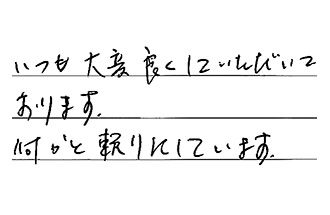 いつも大変良くしていただいて
おります。
何かと頼りにしています。